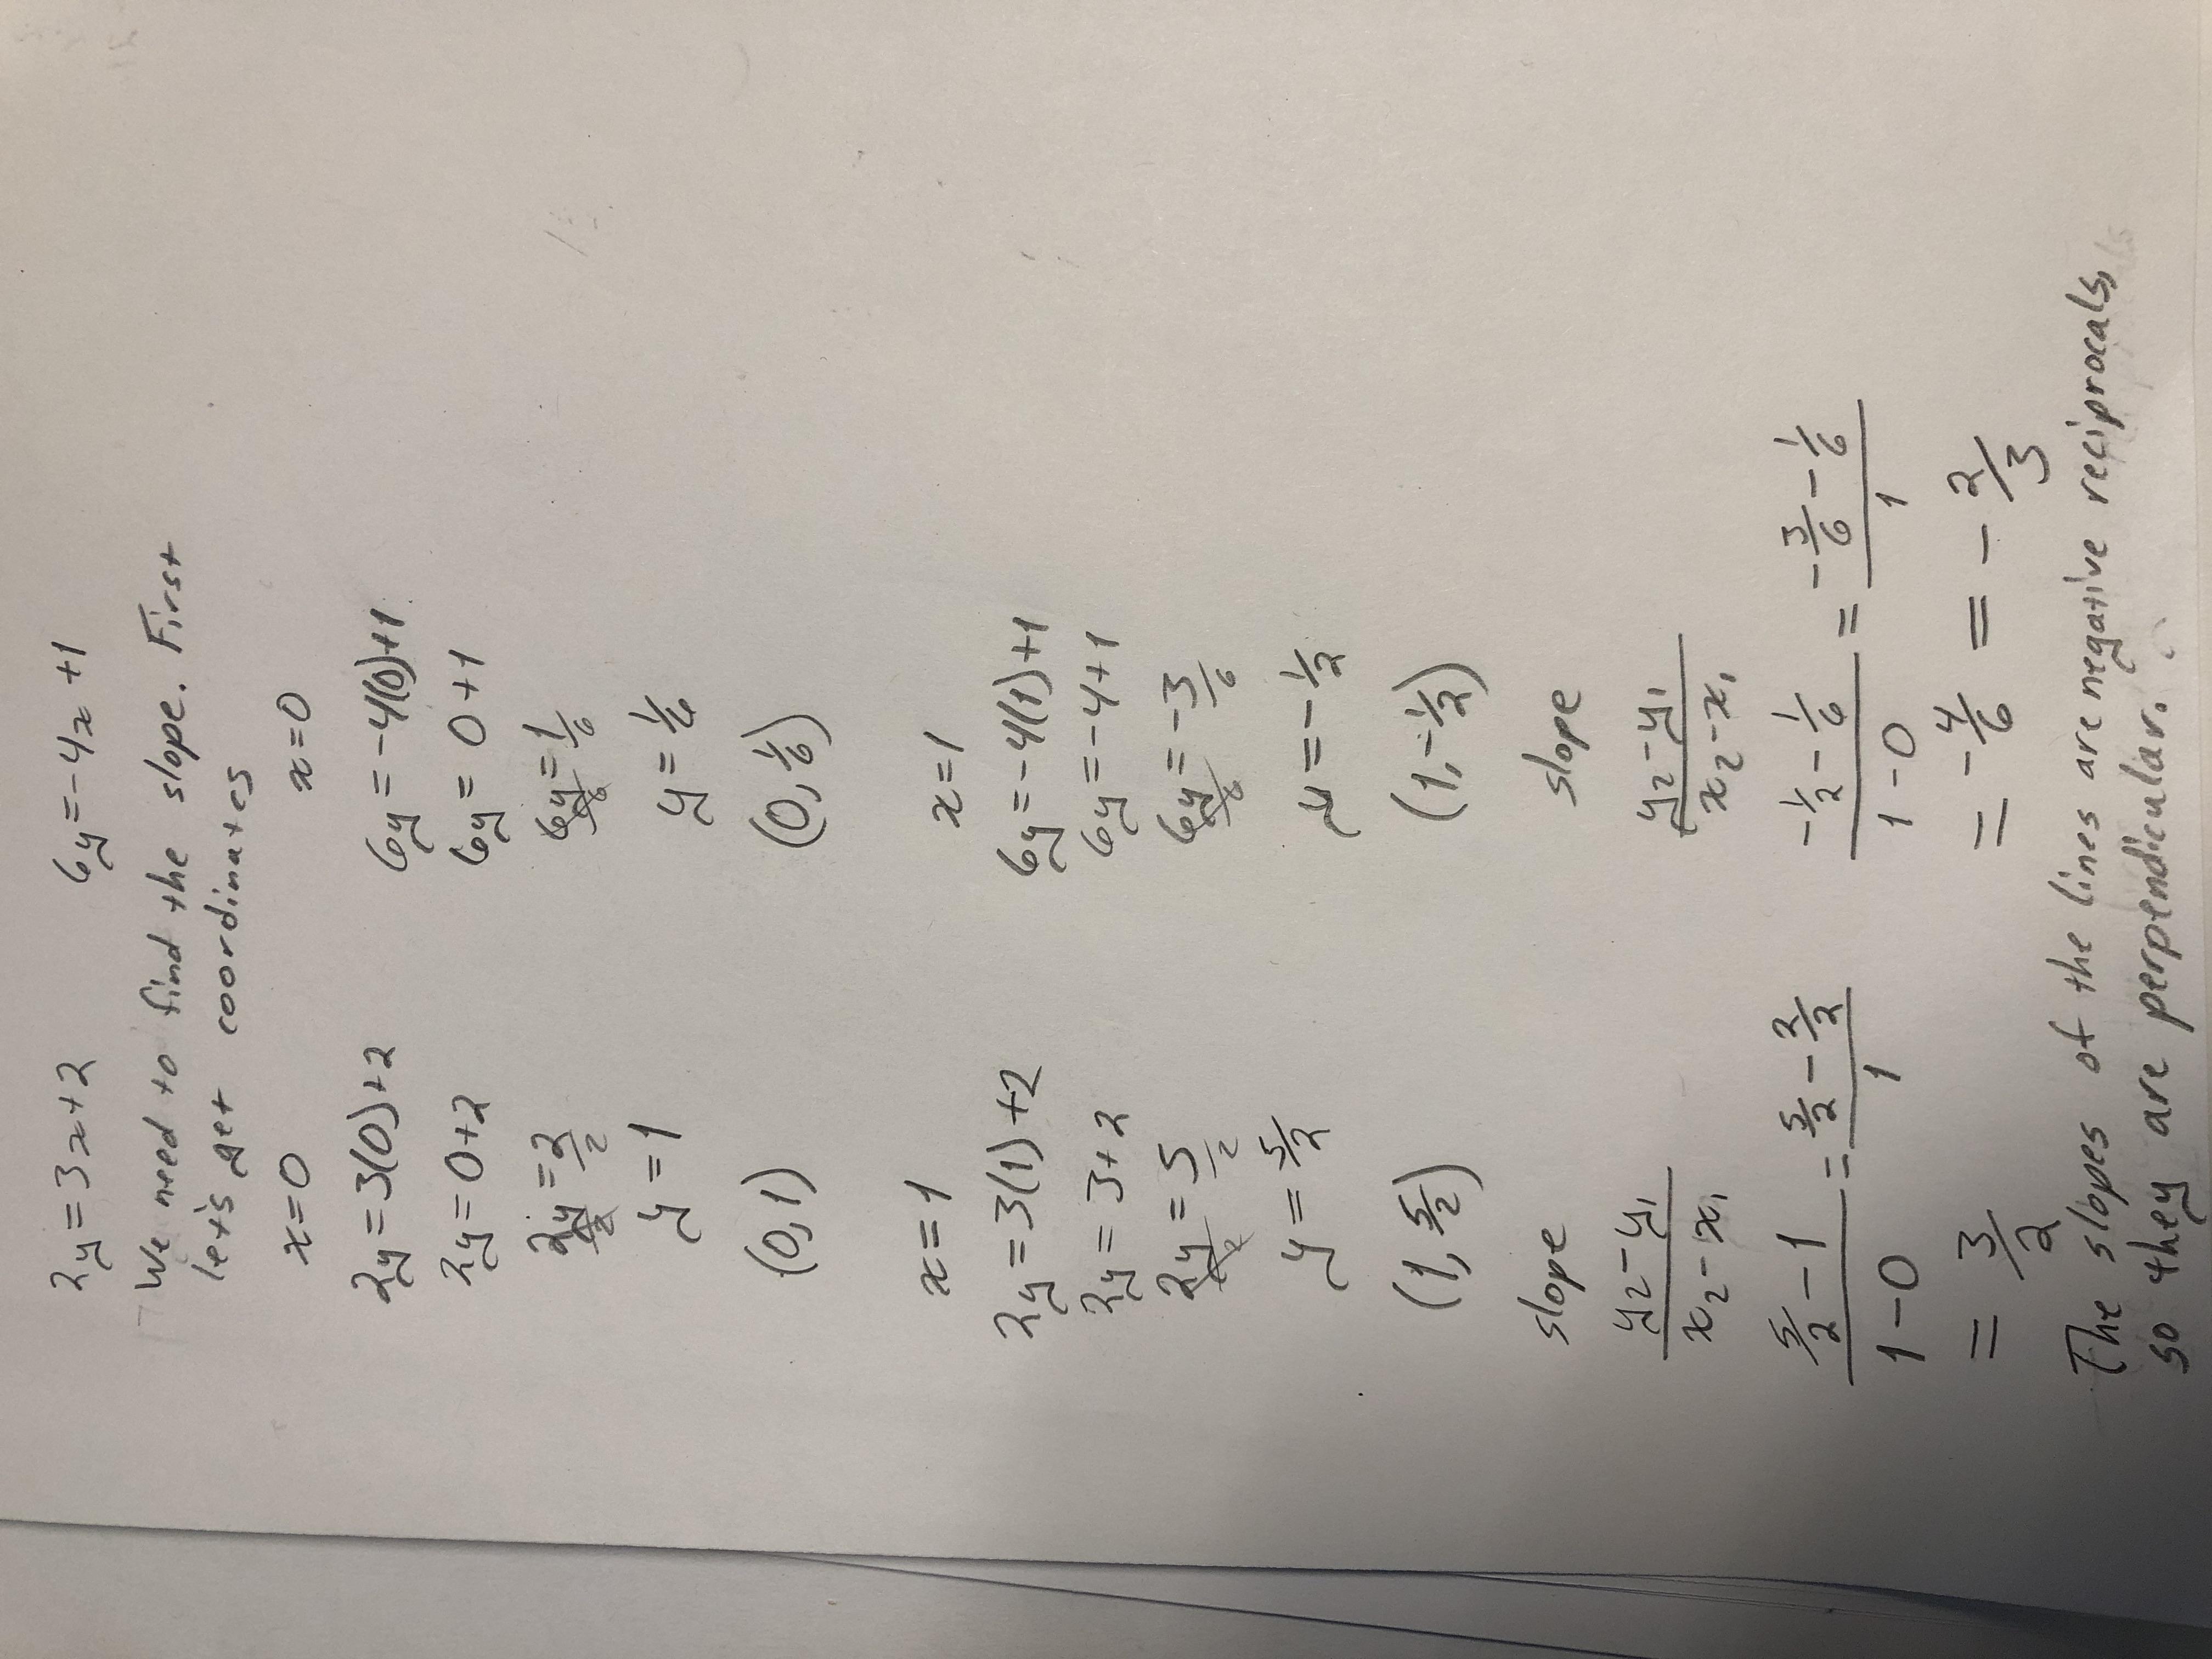 2y=3x+2 6y=-4x+1
We need to find the slope. First
let's get coordinates
x=0 x=0
2y=3(0)+2 6y=-4(0)+1
2y=0+2 6y=0+1
2y/2=2/2 6y/6=1/6
y=1 y=1/6
(0,1) (0,1/6)
x=1 x=1
2y=3(1)+2 6y=-4(1)+1
2y=3+2 6y=-4+1
2y/2=5/2 6y/6=-3/6
y=5/2 y=-1/2
(1,5/2) (1,-1/2)
slope slope
y₂-y₁/x₂-x₁ y₂-y₁/x₂-x₁
5/2-1/1-0=5/2-2/2/1 -1/2-1/6/1-0=-3/6-1/6/1
=3/2 =-4/6=-2/3
The slopes of the lines are negative reciprocals,
so they are perpendicular.